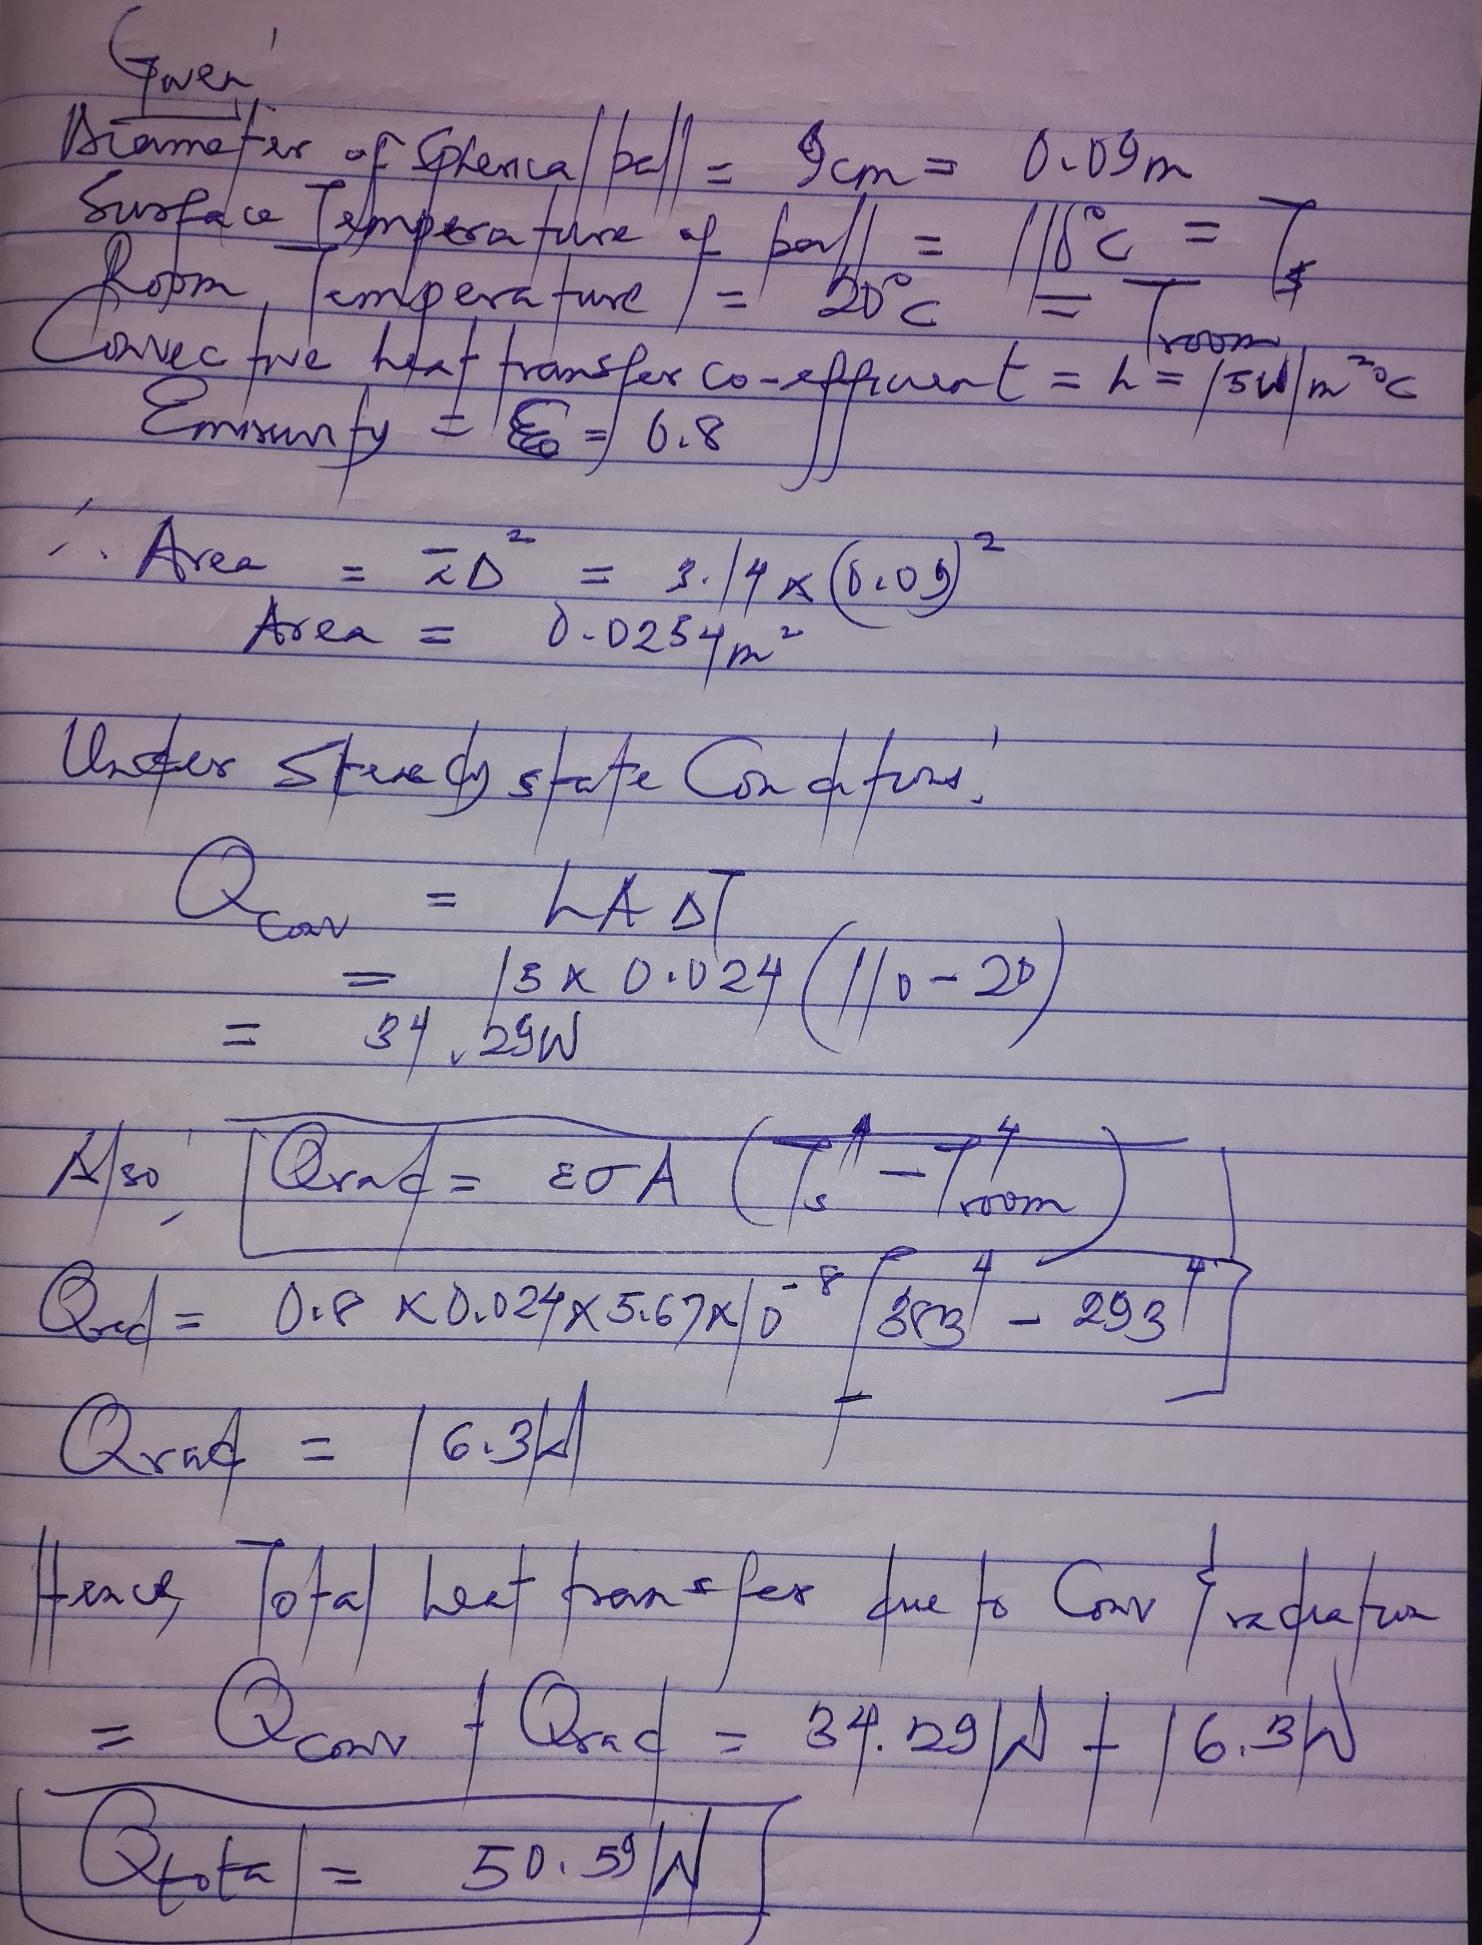 Given,
Diameter of Spherical ball = 9cm = 0.09m
Surface Temperature of ball = 110°C = Ts
Room Temperature = 20°C = Troom
Convective heat transfer co-efficient = h = 15W/m²°C
Emissivity = ε = 0.8
∴ Area = πD² = 3.14 x (0.09)²
Area = 0.0254m²
Under Steady state Conditions,
Qconv = hAΔT
= 15 x 0.024 (110 - 20)
= 34.29W
Also, Qrad = εσA (Ts⁴ - Troom⁴)
Qrad = 0.8 x 0.024 x 5.67 x 10⁻⁸ [383⁴ - 293⁴]
Qrad = 16.3W
Hence, Total heat transfer due to Conv & radiation
= Qconv + Qrad = 34.29W + 16.3W
Qtotal = 50.59W